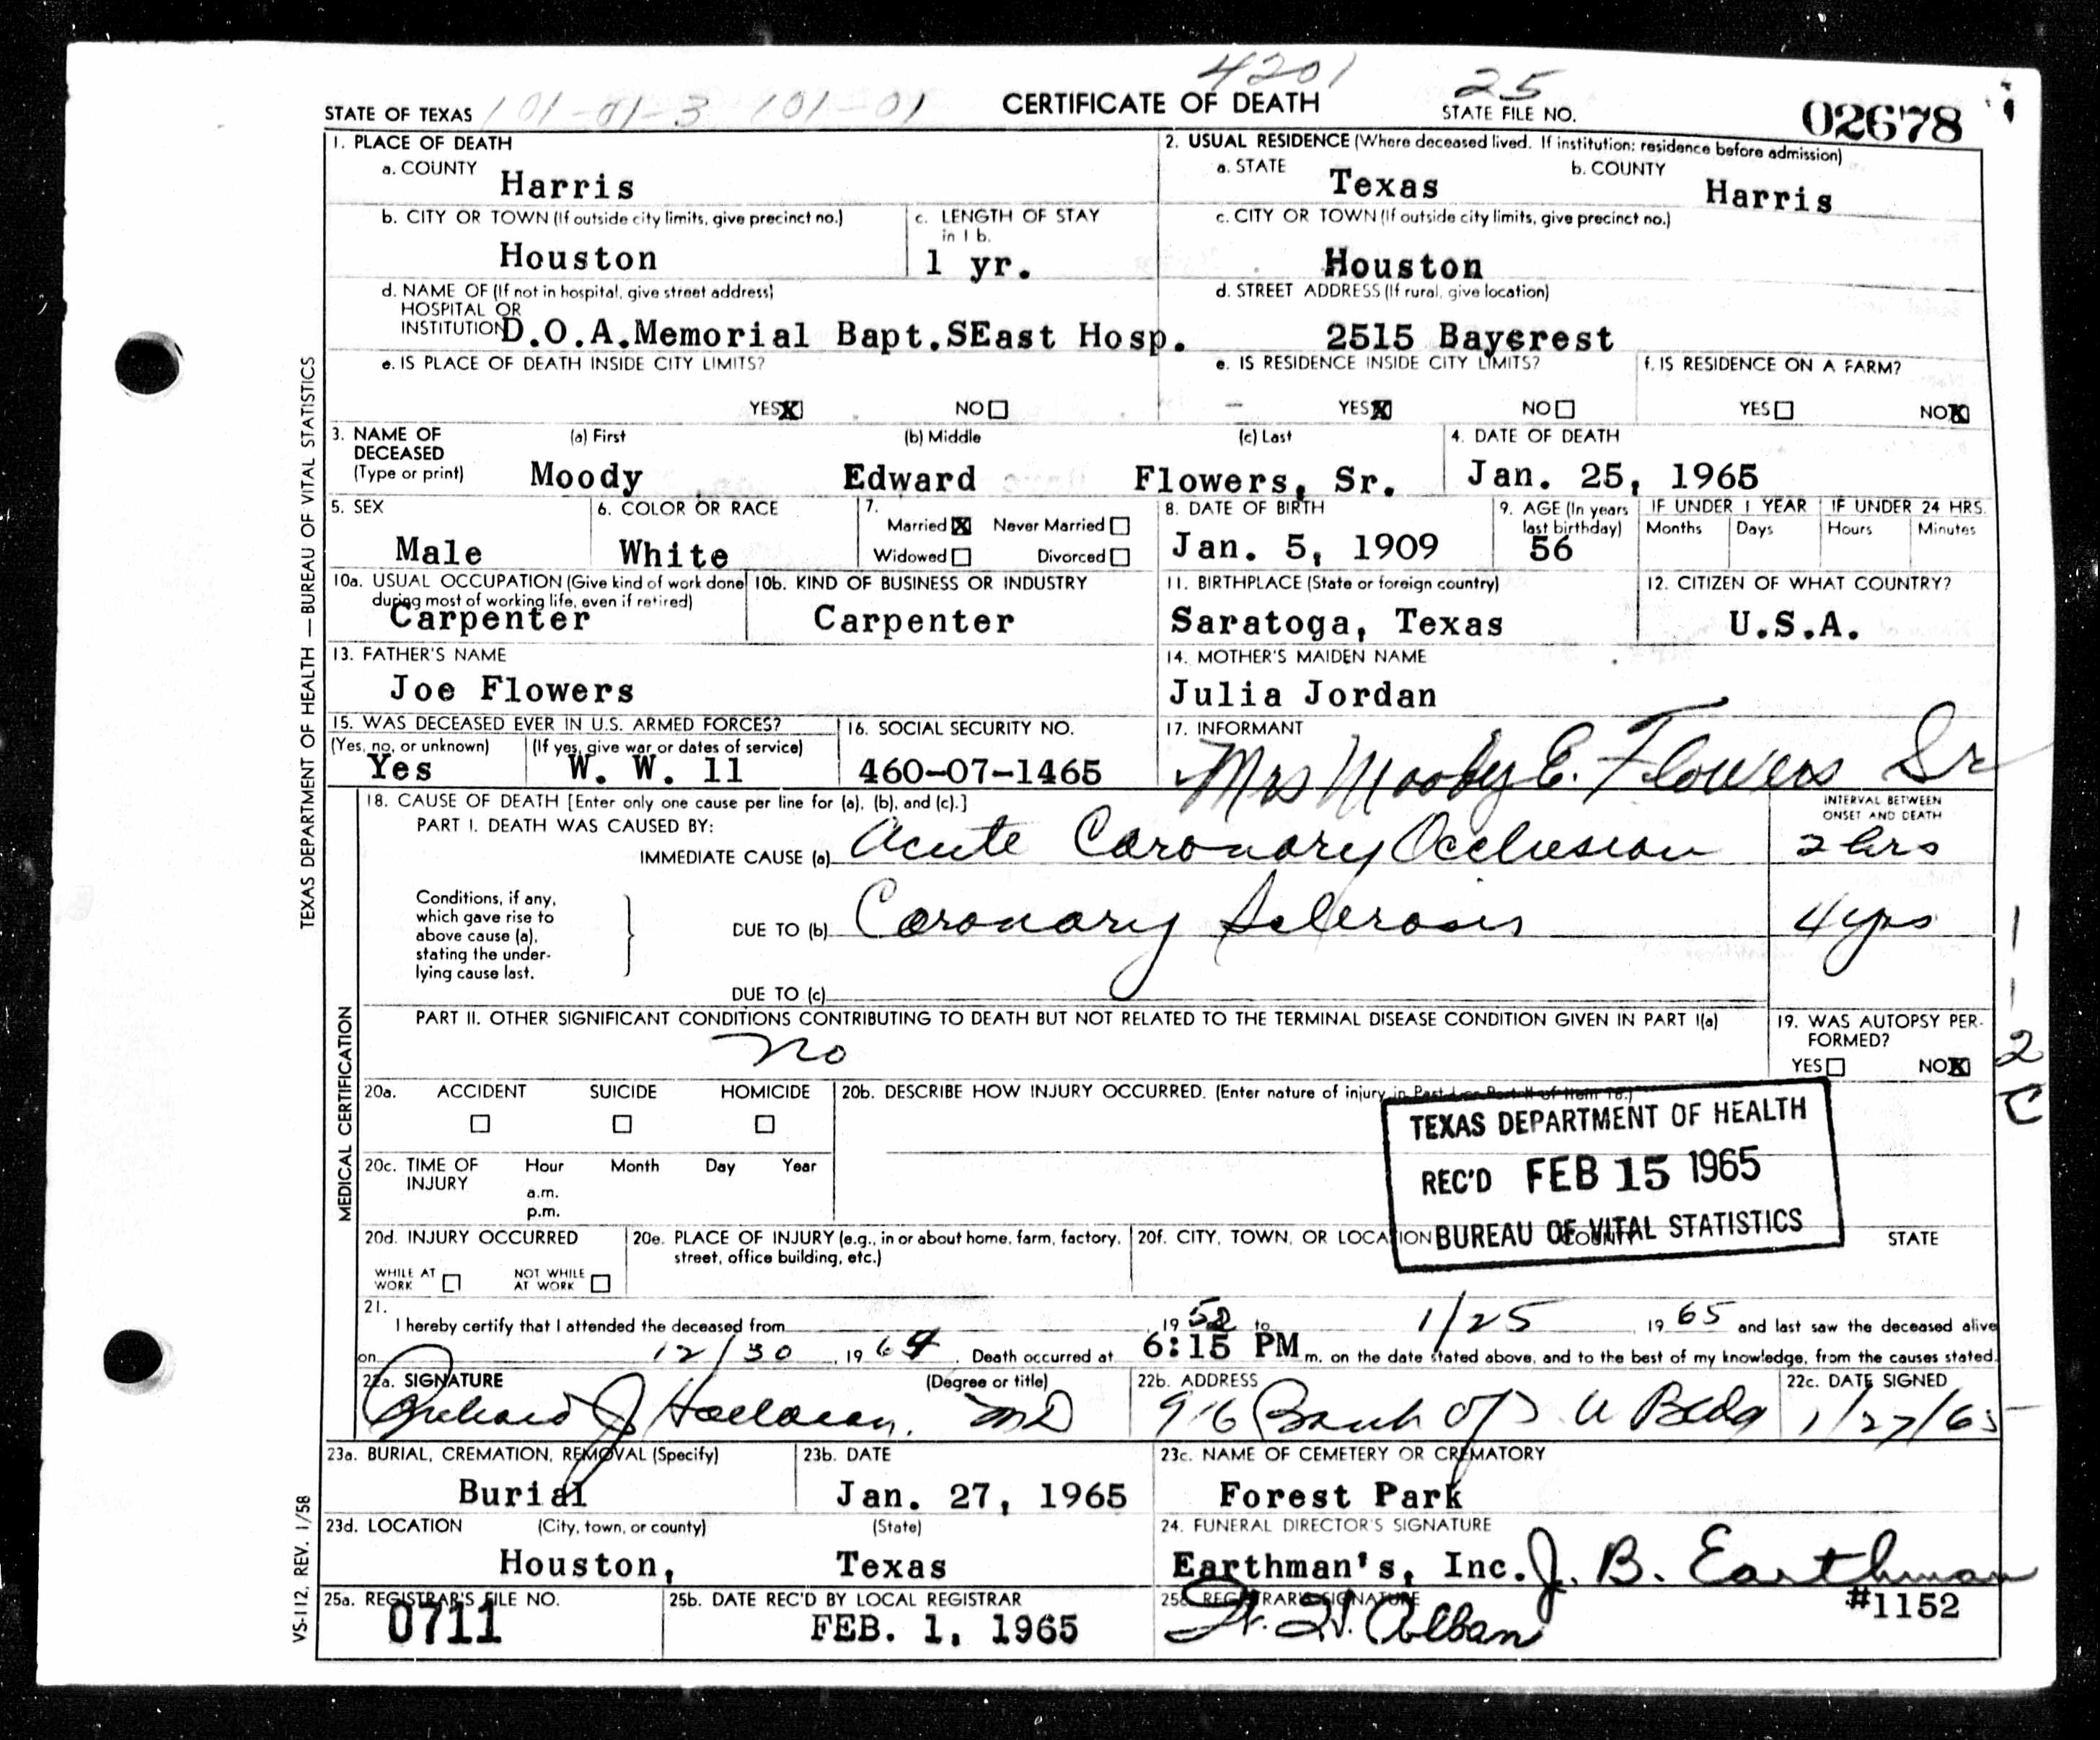 4201
25
STATE OF TEXAS 101-01-3 101-01 CERTIFICATE OF DEATH STATE FILE NO. 02678
1. PLACE OF DEATH
a. COUNTY Harris
2. USUAL RESIDENCE (Where deceased lived. If institution: residence before admission)
a. STATE Texas b. COUNTY Harris
b. CITY OR TOWN (If outside city limits, give precinct no.) Houston
c. LENGTH OF STAY in 1 b. 1 yr.
c. CITY OR TOWN (If outside city limits, give precinct no.) Houston
d. NAME OF (If not in hospital, give street address)
HOSPITAL OR
INSTITUTION D.O.A.Memorial Bapt.SEast Hosp.
d. STREET ADDRESS (If rural, give location)
2515 Baycrest
e. IS PLACE OF DEATH INSIDE CITY LIMITS?
YES X NO
e. IS RESIDENCE INSIDE CITY LIMITS?
YES X NO
f. IS RESIDENCE ON A FARM?
YES NO X
3. NAME OF DECEASED (Type or print)
(a) First (b) Middle (c) Last
Moody Edward Flowers, Sr.
4. DATE OF DEATH
Jan. 25, 1965
5. SEX
Male
6. COLOR OR RACE
White
7.
Married X Never Married
Widowed Divorced
8. DATE OF BIRTH
Jan. 5, 1909
9. AGE (In years last birthday)
56
IF UNDER 1 YEAR
Months Days
IF UNDER 24 HRS.
Hours Minutes
10a. USUAL OCCUPATION (Give kind of work done during most of working life, even if retired)
Carpenter
10b. KIND OF BUSINESS OR INDUSTRY
Carpenter
11. BIRTHPLACE (State or foreign country)
Saratoga, Texas
12. CITIZEN OF WHAT COUNTRY?
U.S.A.
13. FATHER'S NAME
Joe Flowers
14. MOTHER'S MAIDEN NAME
Julia Jordan
15. WAS DECEASED EVER IN U.S. ARMED FORCES?
(Yes, no, or unknown) (If yes, give war or dates of service)
Yes W. W. 11
16. SOCIAL SECURITY NO.
460-07-1465
17. INFORMANT
Mrs Moody E. Flowers Sr
18. CAUSE OF DEATH [Enter only one cause per line for (a), (b), and (c).]
PART I. DEATH WAS CAUSED BY:
INTERVAL BETWEEN
ONSET AND DEATH
IMMEDIATE CAUSE (a) Acute Coronary Occlusion 2 hrs
Conditions, if any,
which gave rise to
above cause (a),
stating the under-
lying cause last.
DUE TO (b) Coronary Sclerosis 4 yrs
DUE TO (c)
PART II. OTHER SIGNIFICANT CONDITIONS CONTRIBUTING TO DEATH BUT NOT RELATED TO THE TERMINAL DISEASE CONDITION GIVEN IN PART I(a)
no
19. WAS AUTOPSY PER-
FORMED?
YES NO X
1
1
2
C
20a. ACCIDENT SUICIDE HOMICIDE
20b. DESCRIBE HOW INJURY OCCURRED. (Enter nature of injury in Part I or Part II of Item 18.)
TEXAS DEPARTMENT OF HEALTH
REC'D FEB 15 1965
BUREAU OF VITAL STATISTICS
20c. TIME OF INJURY
Hour Month Day Year
a.m.
p.m.
20d. INJURY OCCURRED
WHILE AT WORK NOT WHILE AT WORK
20e. PLACE OF INJURY (e.g., in or about home, farm, factory,
street, office building, etc.)
20f. CITY, TOWN, OR LOCATION COUNTY STATE
21.
I hereby certify that I attended the deceased from 1952 to 1/25 1965 and last saw the deceased alive
on 12/30, 1964. Death occurred at 6:15 PM m. on the date stated above, and to the best of my knowledge, from the causes stated.
22a. SIGNATURE (Degree or title)
Richard J MD
22b. ADDRESS
916 Bank of S W Bldg
22c. DATE SIGNED
1/27/65
23a. BURIAL, CREMATION, REMOVAL (Specify)
Burial
23b. DATE
Jan. 27, 1965
23c. NAME OF CEMETERY OR CREMATORY
Forest Park
23d. LOCATION (City, town, or county) (State)
Houston, Texas
24. FUNERAL DIRECTOR'S SIGNATURE
Earthman's, Inc. J. B. Earthman
#1152
25a. REGISTRAR'S FILE NO.
0711
25b. DATE REC'D BY LOCAL REGISTRAR
FEB. 1, 1965
25c. REGISTRAR'S SIGNATURE
Alban
TEXAS DEPARTMENT OF HEALTH — BUREAU OF VITAL STATISTICS
MEDICAL CERTIFICATION
VS-112, REV. 1/58